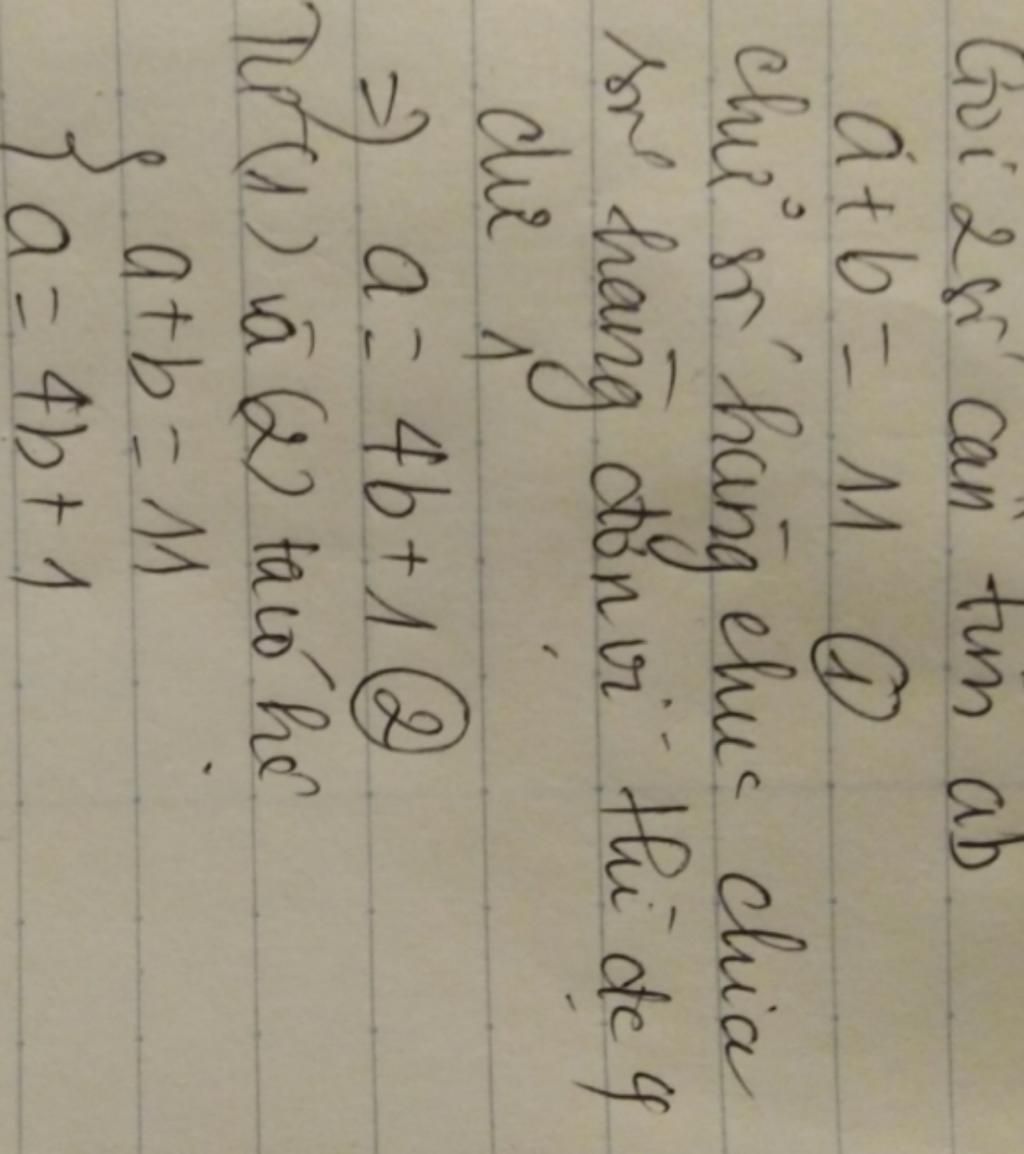 Gọi 2 số cần tìm ab
a + b = 11 ①
chữ số hàng chục chia
số hàng đơn vị thì đc 4
dư 1
=> a = 4b + 1 ②
Từ (1) và (2) ta có hệ
{ a + b = 11
{ a = 4b + 1